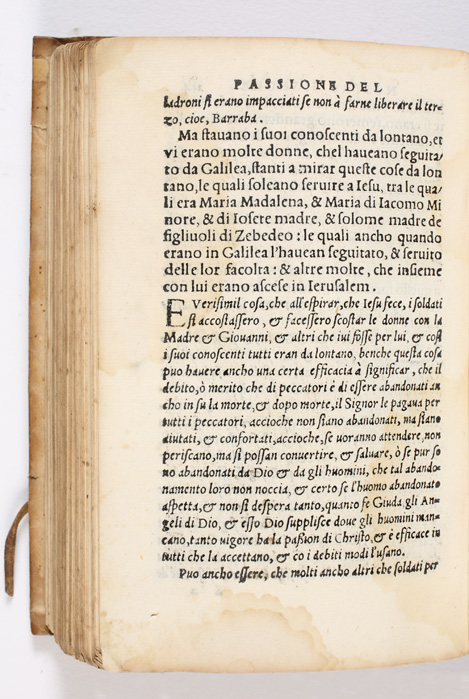 PASSIONE DEL
ladroni si erano impacciati se non à farne liberare il ter-
zo, cioe, Barraba.
Ma stauano i suoi conoscenti da lontano, et
vi erano molte donne, chel haueano seguita
to da Galilea, stanti a mirar queste cose da lon
tano, le quali soleano seruire a Iesu, tra le qua/
li era Maria Madalena, & Maria di Iacomo Mi
nore, & di Iosete madre, & solome madre de
figliuoli di Zebedeo : le quali ancho quando
erano in Galilea l'hauean seguitato, & seruito
delle lor facolta : & altre molte, che insieme
con lui erano ascese in Ierusalem.
E Verisimil cosa, che all'espirar, che Iesu fece, i soldati
si accostassero, & facessero scostar le donne con la
Madre & Giouanni, & altri che iui fosse per lui, & così
i suoi conoscenti tutti eran da lontano, benche questa cosa
puo hauere ancho una certa efficacia à significar, che il
debito, ò merito che di peccatori è di essere abandonati an
cho in su la morte, & dopo morte, il Signor le pagaua per
tutti i peccatori, accioche non siano abandonati, ma siano
aiutati, & confortati, accioche, se uoranno attendere, non
periscano, ma si possan conuertire, & saluare, ò se pur so
no abandonati da Dio & da gli huomini, che tal abando-
namento loro non noccia, & certo se l'huomo abandonato
aspetta, & non si despera tanto, quanto fe Giuda, gli An-
geli di Dio, & esso Dio supplisce doue gli huomini man-
cano, tanto uigore ha la passion di Christo, & è efficace in
tutti che la accettano, & co i debiti modi l'usano.
Puo ancho essere, che molti ancho altri che soldati per